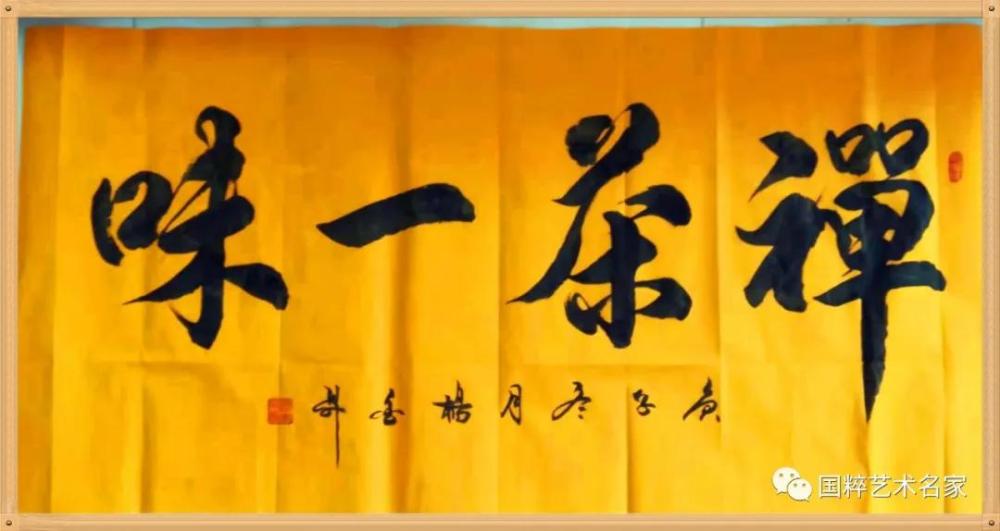 禪茶一味
庚子冬月楊金
国粹艺术名家